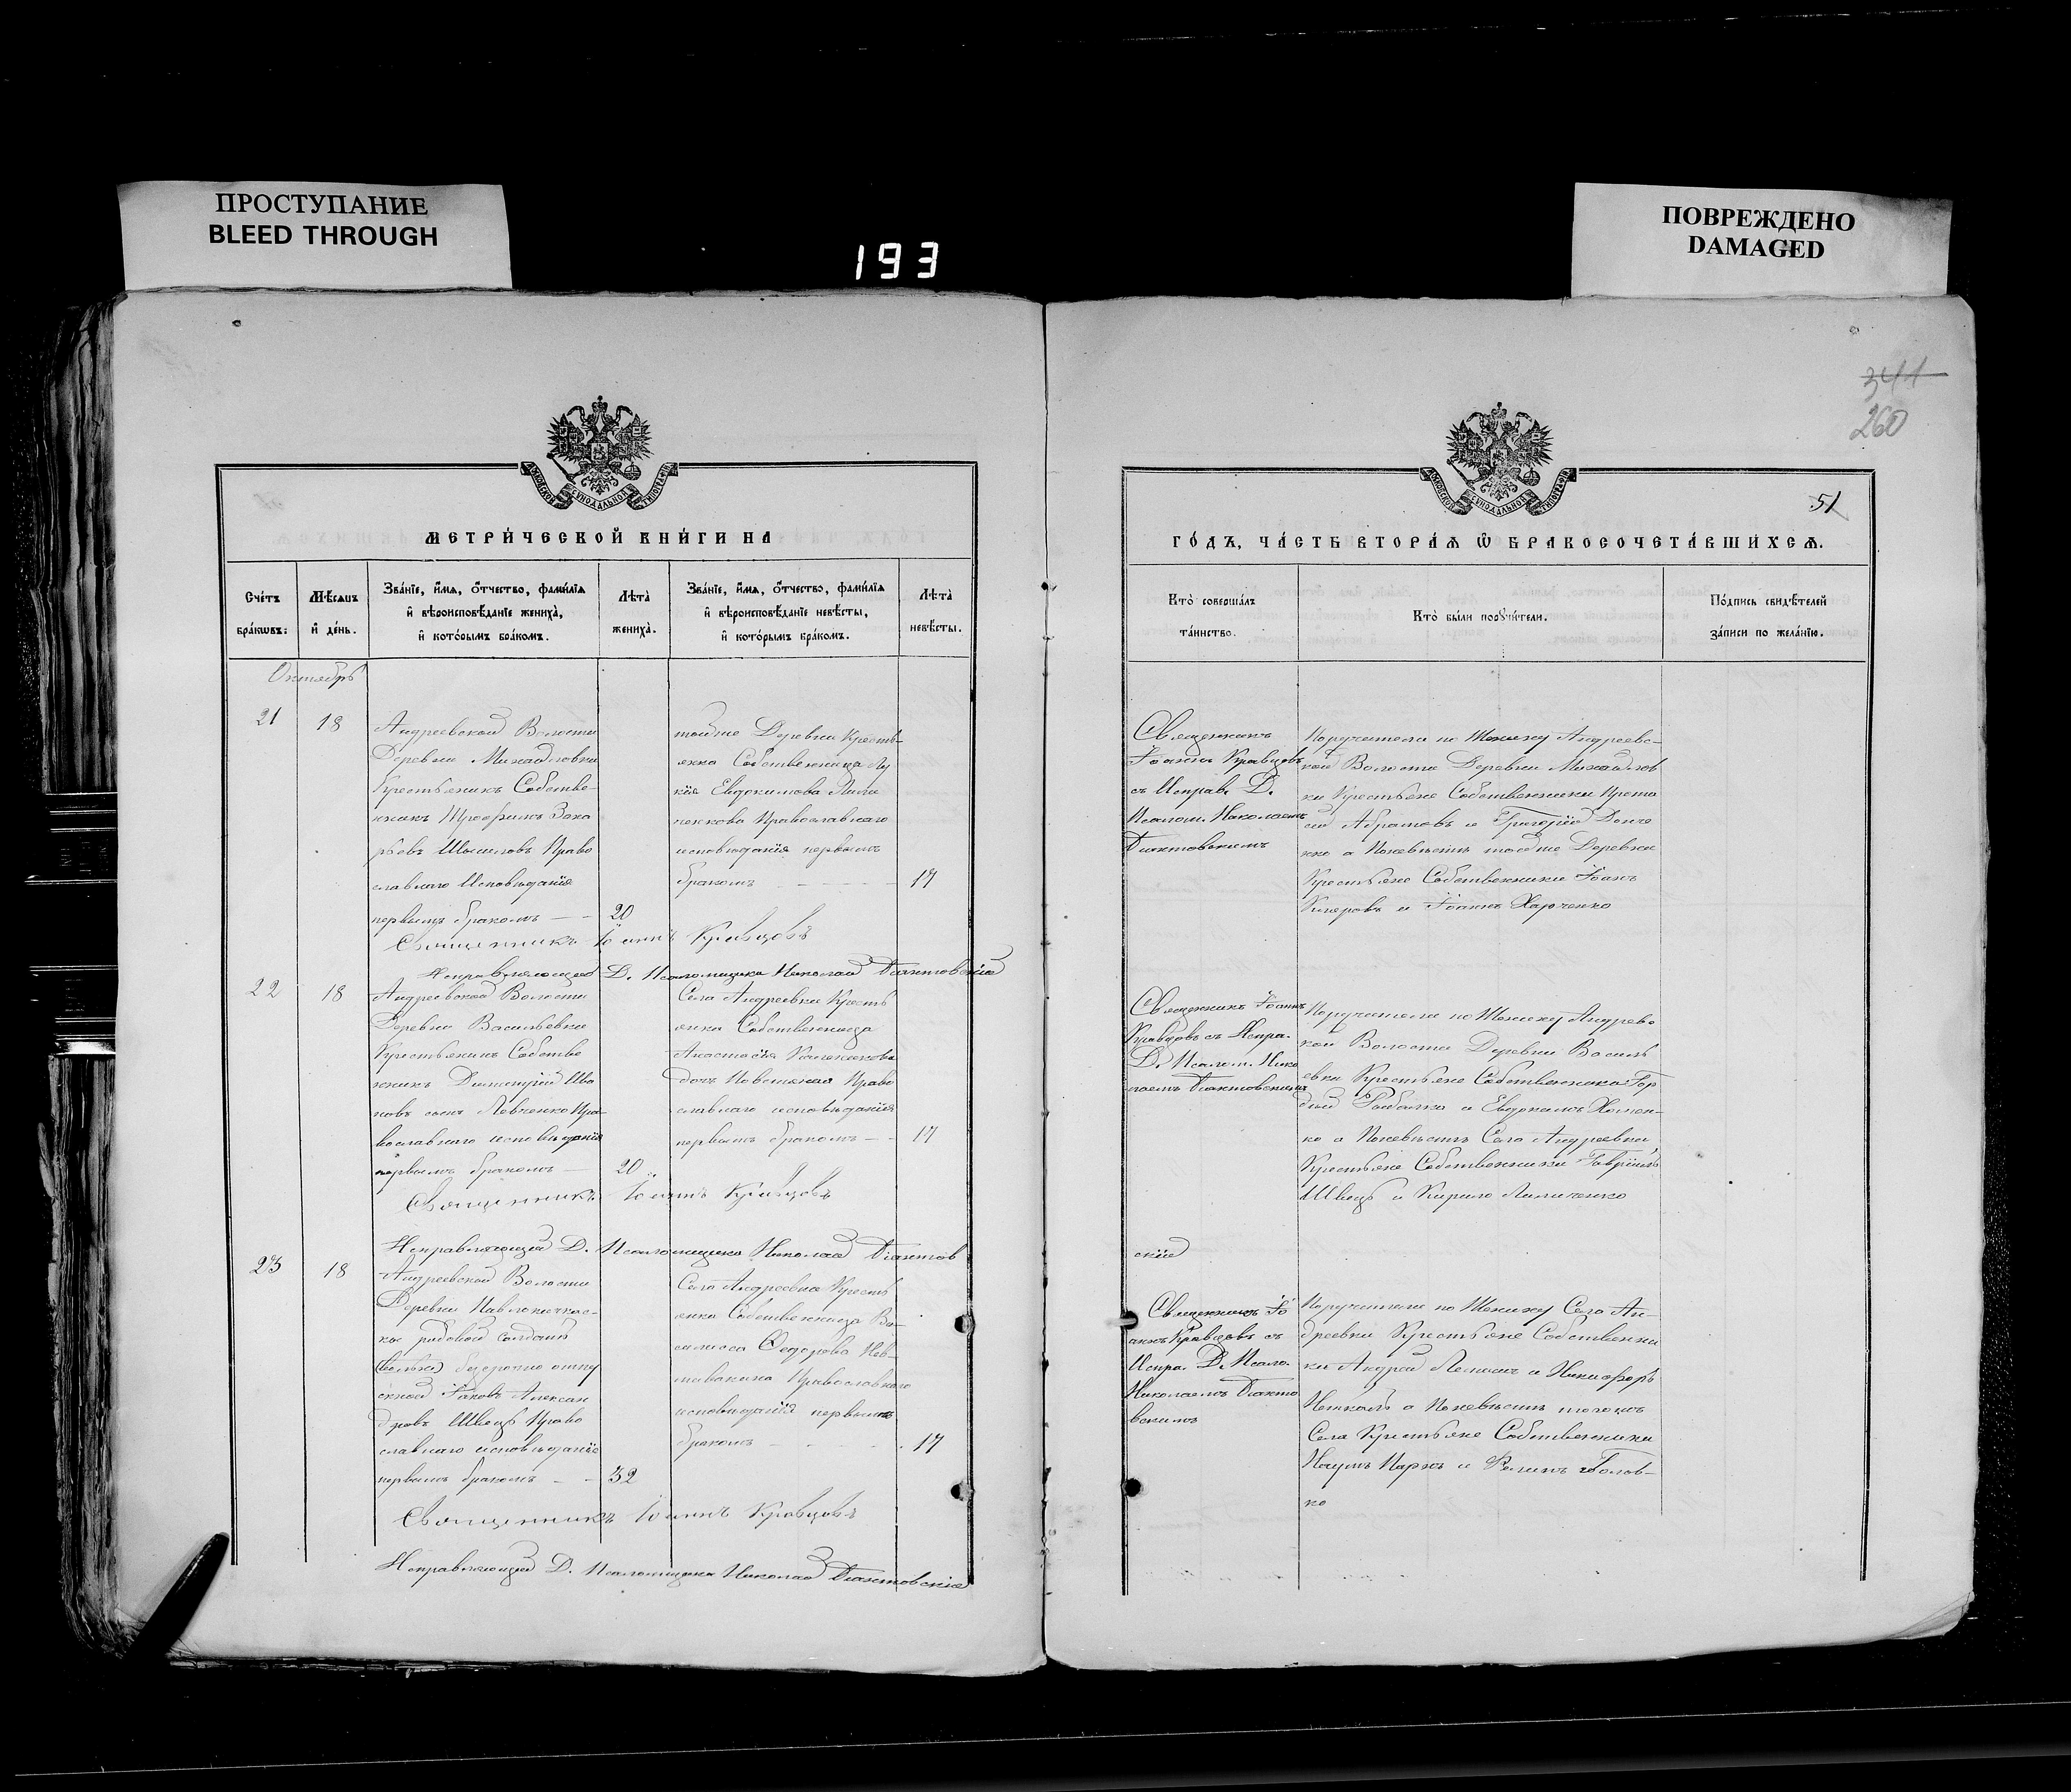 ПРОСТУПАНИЕ
BLEED THROUGH
193
ПОВРЕЖДЕНО
DAMAGED
341
260
МОСКОВСКОЙ СѴНОДАЛЬНОЙ ТИПОГРАФІИ
МЕТРИ́ЧЕСКОЙ КНИ́ГИ НА
Сче́тъ бра́кѡвъ:
Мѣ́сѧцъ и҆ де́нь.
Зва́нїе, и҆́мѧ, ѻ҆́тчество, фами́лїѧ и҆ вѣроисповѣ́данїе жениха̀, и҆ кото́рымъ бра́комъ.
Лѣта̀ жениха̀.
Зва́нїе, и҆́мѧ, ѻ҆́тчество, фами́лїѧ и҆ вѣроисповѣ́данїе невѣ́сты, и҆ кото́рымъ бра́комъ.
Лѣта̀ невѣ́сты.
Октябрь
21
18
Андреевской Волости
Деревни Михайловки
Крестьянинъ Собстве-
нникъ Трофимъ Заха
рьевъ Право
славнаго Исповѣданія
первымъ бракомъ
20
тойже Деревни Кресть-
янка Собственница Лу
кія Евдокимова
Православнаго
исповѣданія первымъ
бракомъ
17
Священникъ Іоаннъ Кравцовъ
Исправляющій Д. Псаломщика Николай
22
18
Андреевской Волости
Деревни Васильевки
Крестьянинъ Собстве
нникъ Димитрій Ива
новъ сынъ Левченко Пра-
вославнаго исповѣданія
первымъ бракомъ
20
Села Андреевки Кресть
янка Собственница
Анастасія
Право
славнаго исповѣданія
первымъ бракомъ
17
Священникъ Іоаннъ Кравцовъ
Исправляющій Д. Псаломщика Николай
23
18
Андреевской Волости
Деревни
рядовой
безсрочно отпу
скной Іаковъ Алексан
дровъ Швецъ Право
славнаго исповѣданія
первымъ бракомъ
32
Села Андреевки Кресть
янка Собственница Ва-
силиса Федорова
Православнаго
исповѣданія первымъ
бракомъ
17
Священникъ Іоаннъ Кравцовъ
Исправляющій Д. Псаломщика Николай
МОСКОВСКОЙ СѴНОДАЛЬНОЙ ТИПОГРАФІИ
51
ГО́ДЪ, ЧА́СТЬ ВТОРА́Ѧ Ѽ БРАКОСОЧЕТА́ВШИХСѦ.
Кто̀ соверша́лъ та́инство.
Кто̀ бы́ли порꙋчи́тели.
По́дпись свидѣ́телей за́писи по жела́нїю.
Священникъ
Іоаннъ Кравцовъ
съ Исправ. Д.
Псалом. Николаемъ
Поручители по Жениху Андреевс-
кой Волости Деревни Михайлов
ки Крестьяне Собственники Прота
сій Абрамовъ и Григорій Донче
нко а По невѣстѣ тойже Деревни
Крестьяне Собственники Іоанъ
и Іоаннъ Харченко
Священникъ Іоаннъ
Кравцовъ съ Испра.
Д. Псалом. Нико
лаемъ
Поручители по Жениху Андреевс
кой Волости Деревни Василь
евки Крестьяне Собственники Гор
дій Рыбалка и Евдокимъ Хомен-
ко а По невѣстѣ Села Андреевки
Крестьяне Собственники Гавріилъ
Швецъ и Кирило
скій
Священникъ Іо
аннъ Кравцовъ съ
Испра. Д. Псало.
Николаемъ
вскимъ
Поручители по Жениху Села Ан-
дреевки Крестьяне Собственни
ки Андрей и Никифоръ
а По невѣстѣ
Села Крестьяне Собственники
Наумъ и Голов-
ко